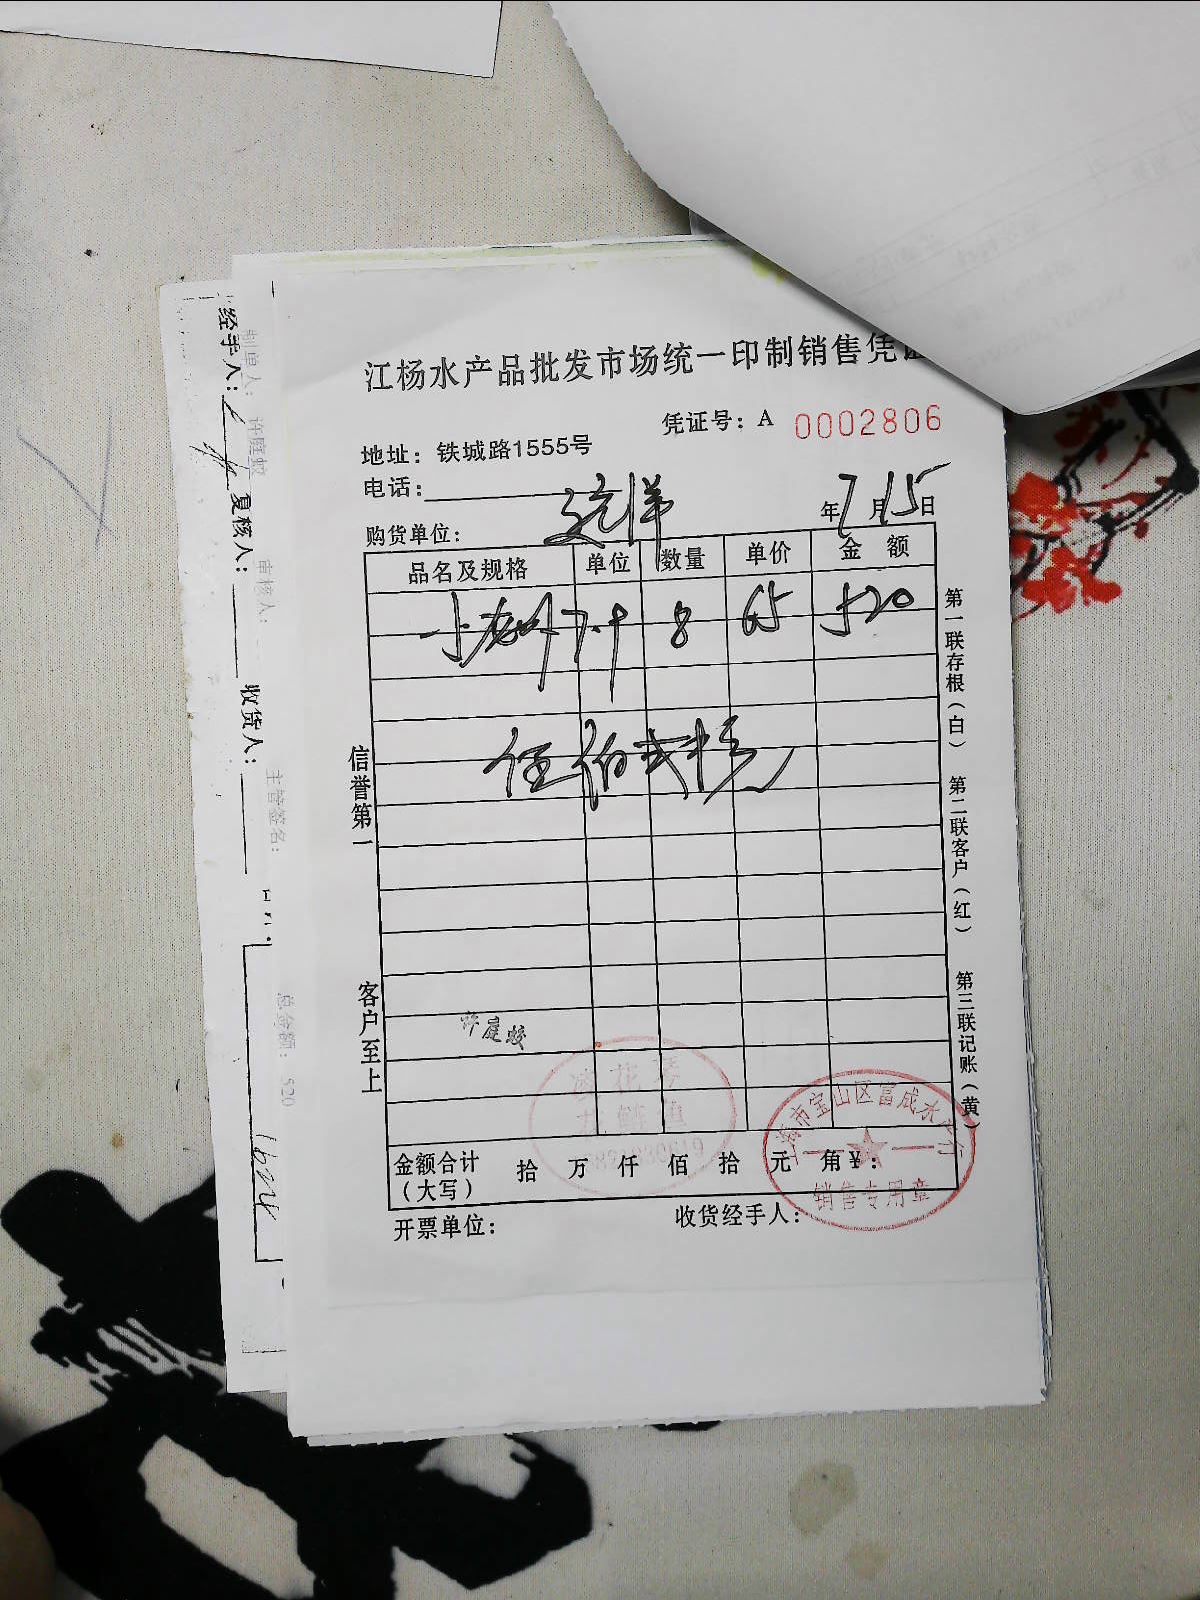 江杨水产品批发市场统一印制销售凭证
凭证号：A 0002806
地址：铁城路1555号
电话：
购货单位： 远洋 年7月15日
品名及规格 单位 数量 单价 金额
小龙虾 7.9 8 65 520
伍佰贰拾元
许庭蛟
金额合计（大写） 拾 万 仟 佰 拾 元 角¥：
开票单位： 收货经手人：
信誉第一 客户至上
第一联存根（白） 第二联客户（红） 第三联记账（黄）
上海市宝山区富成水产行
销售专用章
经手人： 复核人： 收货人：
制单人： 许庭蛟 审核人： 主管签名： 总金额：520